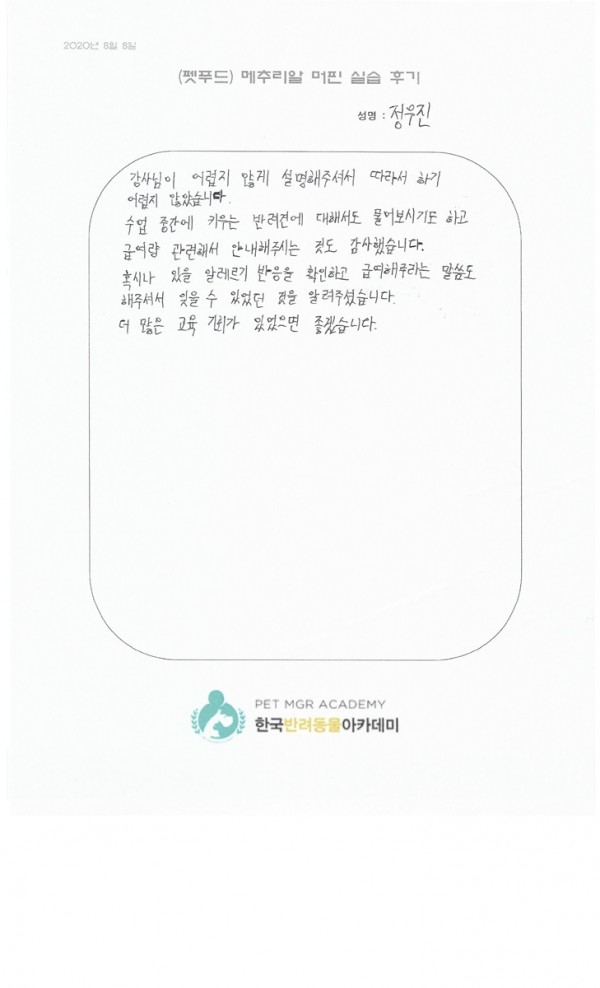 2020년 8월 8일
(펫푸드) 메추리알 머핀 실습 후기
성명 : 정우진
강사님이 어렵지 않게 설명해주셔서 따라서 하기
어렵지 않았습니다.
수업 중간에 키우는 반려견에 대해서도 물어보시기도 하고
급여량 관련해서 안내해주시는 것도 감사했습니다.
혹시나 있을 알레르기 반응을 확인하고 급여해주라는 말씀도
해주셔서 잊을 수 있었던 것을 알려주셨습니다.
더 많은 교육 기회가 있었으면 좋겠습니다.
PET MGR ACADEMY
한국반려동물아카데미